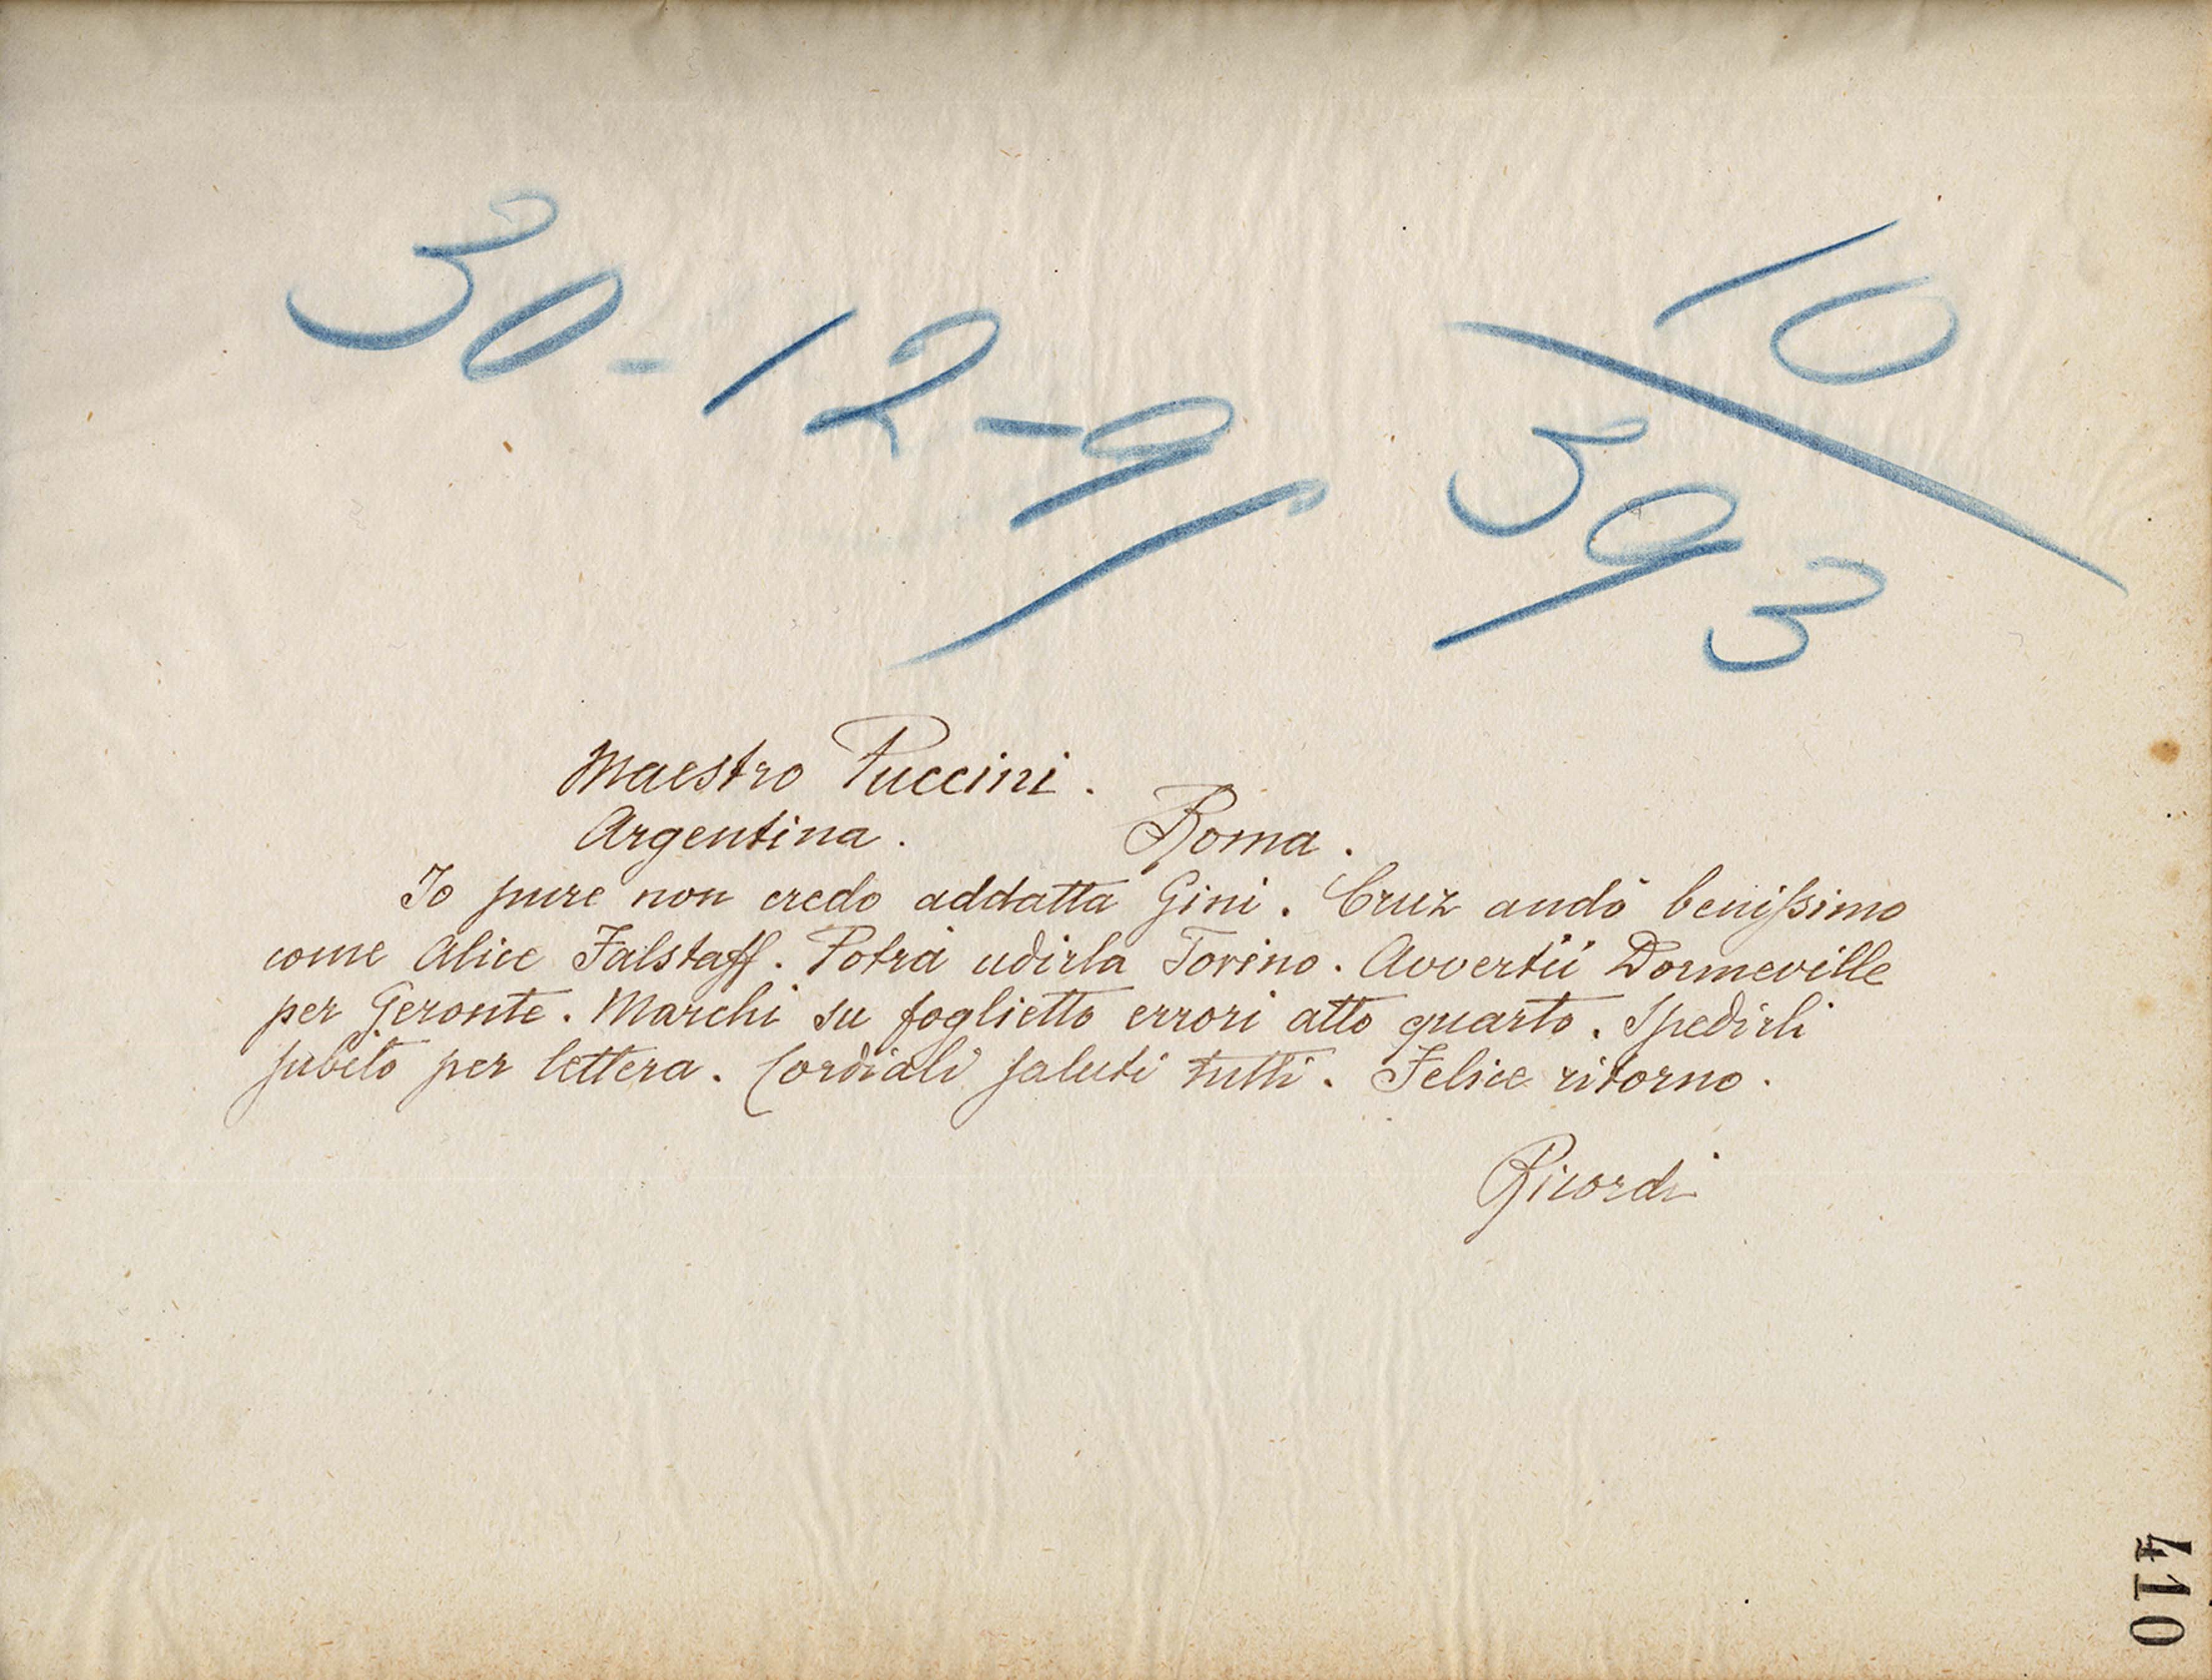 30-12-95
10
393
Maestro Puccini.
Argentina. Roma.
Io pure non credo addatta Gini. Cruz andò benissimo
come Alice Falstaff. Potrà udirla Torino. Avvertii Dormeville
per Geronte. Marchi su foglietto errori atto quarto. Spedirli
subito per lettera. Cordiali saluti tutti. Felice ritorno.
Ricordi
410